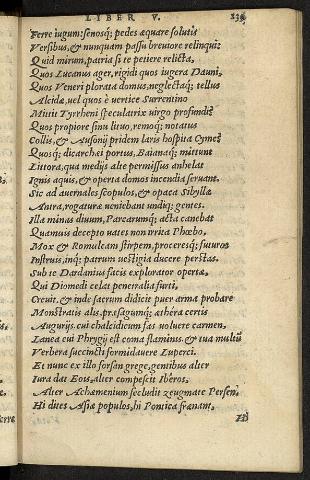 LIBER V.
Ferre iugum: senosq; pedes æquare solutis
Versibus, & nunquam passu breuiore relinqui:
Quid mirum, patria si te petiere relicta,
Quos Lucanus ager, rigidi quos iugera Dauni,
Quos Veneri plorata domus, neglectaq; tellus
Alcidæ, uel quos è uertice Surrentino
Mittit Tyrrheni speculatrix uirgo profundi:
Quos propiore sinu lituo, remoq; notatus
Collis, & Ausonij pridem laris hospita Cyme:
Quosq; dicarchei portus, Baianaq; mittunt
Littora, qua medijs alte permissus anhelat
Ignis aquis, & operta domos incendia seruant.
Sic ad auernales scopulos, & opaca Sibyllæ
Antra, rogaturæ ueniebant undiq; gentes.
Illa minas diuum, Parcarumq; acta canebat
Quamuis decepto uates non irrita Phœbo,
Mox & Romuleam stirpem, proceresq; futuros
Instruis, inq; patrum uestigia ducere perstas.
Sub te Dardanius facis explorator opertæ,
Qui Diomedi celat penetralia furti,
Creuit, & inde sacrum didicit puer arma probare
Monstratis alis, præsagumq; æthera certis
Augurijs cui chalcidicum fas uoluere carmen,
Lanea cui Phrygij est coma flaminis & tua multum
Verbera succincti formidauere Luperci.
Et nunc ex illo forsan grege, gentibus alter
Iura dat Eois, alter compescit Ibêros,
Alter Achæmenium secludit zeugmate Persen,
Hi dites Asiæ populos, hi Pontica frænant,